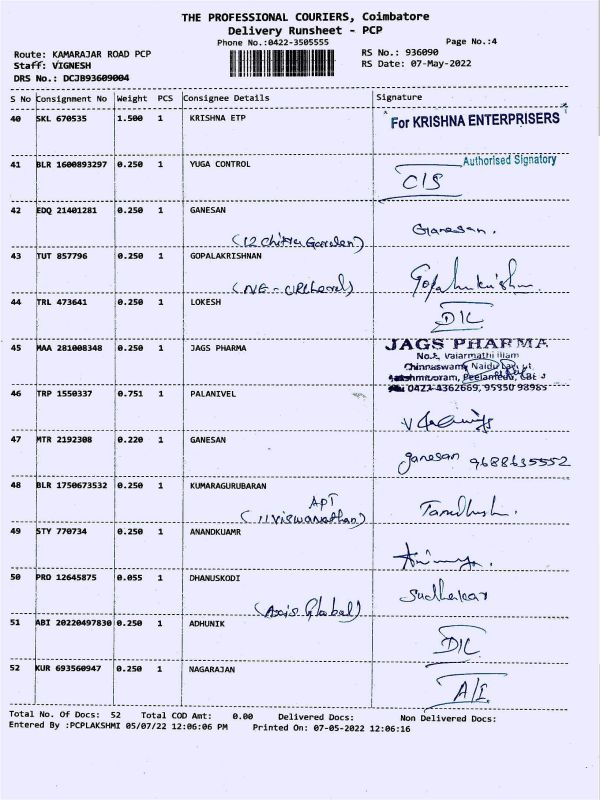 THE PROFESSIONAL COURIERS, Coimbatore
Delivery Runsheet - PCP
Phone No.:0422-3505555
Page No.:4
Route: KAMARAJAR ROAD PCP
RS No.: 936090
Staff: VIGNESH
RS Date: 07-May-2022
DRS No.: DCJB93609004
S No Consignment No Weight PCS Consignee Details Signature
40 SKL 670535 1.500 1 KRISHNA ETP
For KRISHNA ENTERPRISERS
Authorised Signatory
41 BLR 1600893297 0.250 1 YUGA CONTROL
C/S
42 EDQ 21401281 0.250 1 GANESAN
Ganesan.
(12 Chitra Garden)
43 TUT 857796 0.250 1 GOPALAKRISHNAN
44 TRL 473641 0.250 1 LOKESH
D/L
45 MAA 281008348 0.250 1 JAGS PHARMA
JAGS PHARMA
No.2, Valarmathi Illam
Chinnaswamy Naidu
Peelamedu, CBE
0422-4362669,
46 TRP 1550337 0.751 1 PALANIVEL
47 MTR 2192308 0.220 1 GANESAN
ganesan 9688635552
48 BLR 1750673532 0.250 1 KUMARAGURUBARAN
APT
(11 Viswanathan)
49 STY 770734 0.250 1 ANANDKUAMR
50 PRO 12645875 0.055 1 DHANUSKODI
Sudhakar
(Axis Global)
51 ABI 20220497830 0.250 1 ADHUNIK
D/L
52 KUR 693560947 0.250 1 NAGARAJAN
A/I
Total No. Of Docs: 52 Total COD Amt: 0.00 Delivered Docs: Non Delivered Docs:
Entered By :PCPLAKSHMI 05/07/22 12:06:06 PM Printed On: 07-05-2022 12:06:16